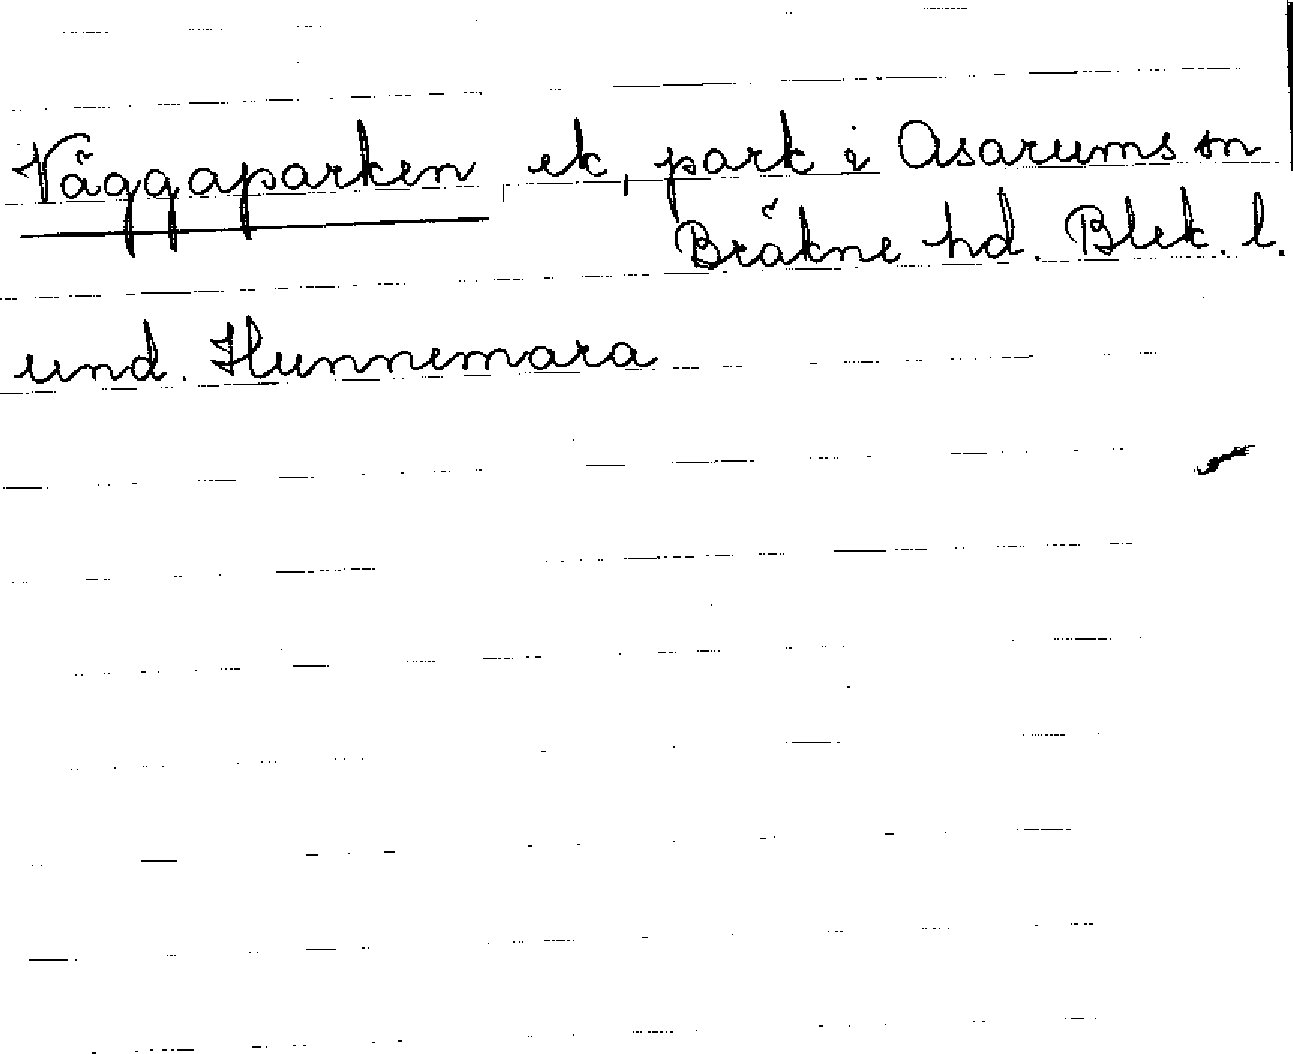 Väggaparken ek, park i Asarums sn
Bräkne hd. Blek. l.
und. Hunnemara